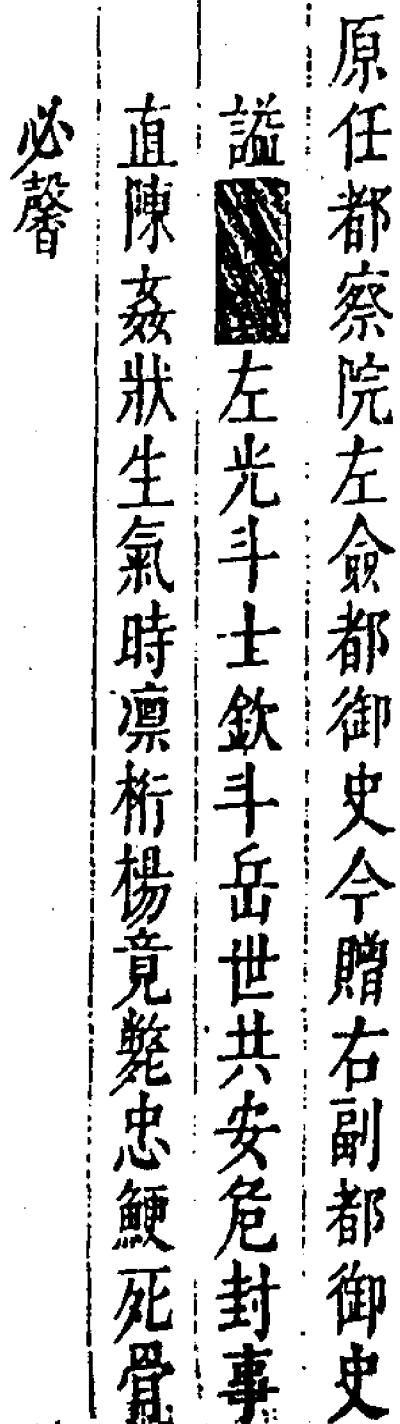 原任都察院左僉都御史今贈右副都御史
謚左光斗士欽斗岳世共安危封事
直陳姦狀生氣時凛桁楊竟斃忠鯁死骨
必馨